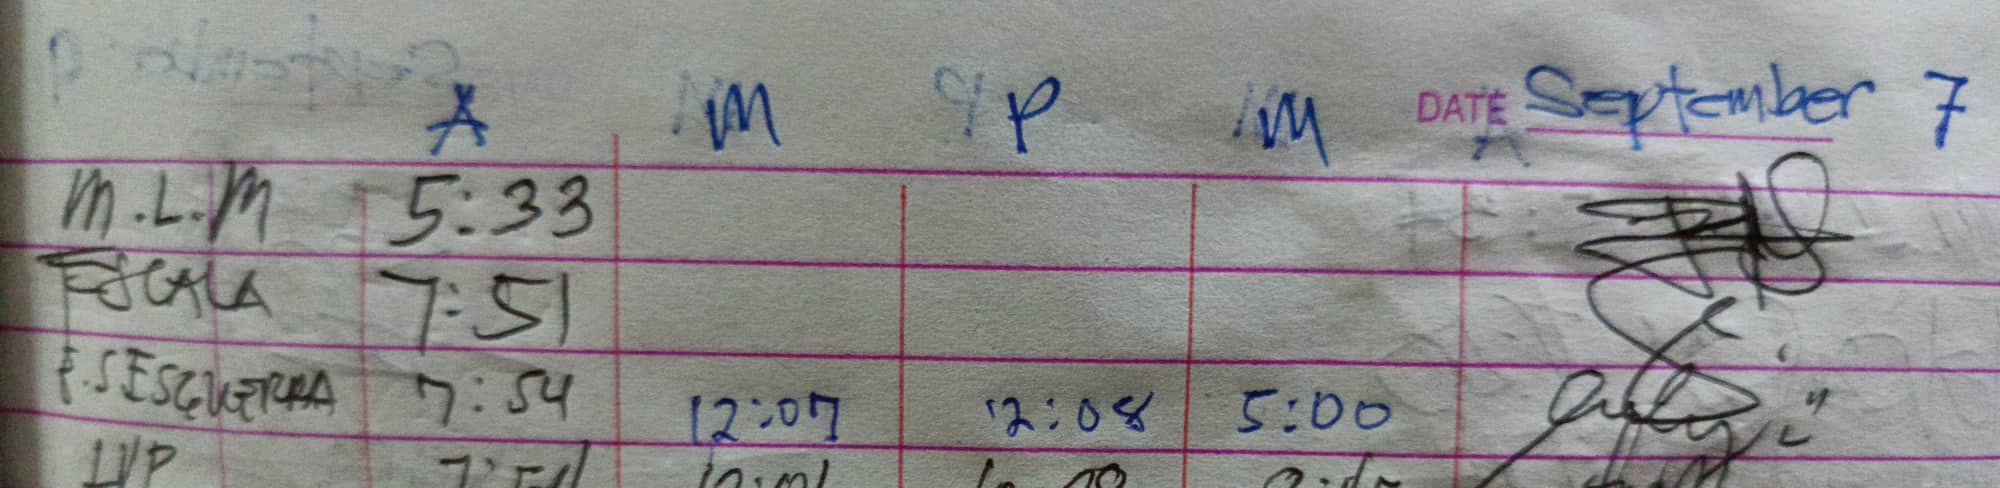 A M P M DATE September 7
M.L.M 5:33
ESCALA 7:51
P.S ESGUERRA 7:54 12:07 12:08 5:00